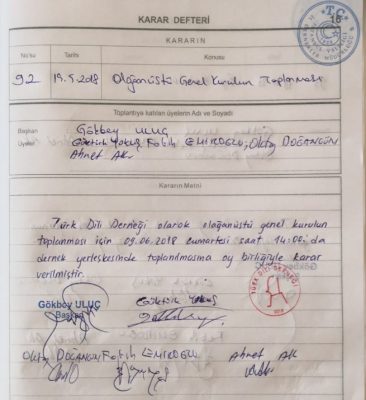 KARAR DEFTERİ
T.C.
16
KARARIN
No'su Tarihi Konusu
92 19.5.2018 Olağanüstü Genel Kurulun Toplanması
Toplantıya katılan üyelerin Adı ve Soyadı
Başkan Gökbey ULUÇ
Üyeler Göktürk Yakuş, Fatih EMİROĞLU, Oktay DOĞANGÜN
Ahmet AK
Kararın Metni
Türk Dili Derneği olarak olağanüstü genel kurulun
toplanması için 09.06.2018 cumartesi saat 14:00'da
dernek yerleşkesinde toplanılmasına oy birliğiyle karar
verilmiştir.
TÜRK DİLİ DERNEĞİ
Gökbey ULUÇ Göktürk Yakuş
Başkan
Oktay DOĞANGÜN Fatih EMİROĞLU Ahmet AK